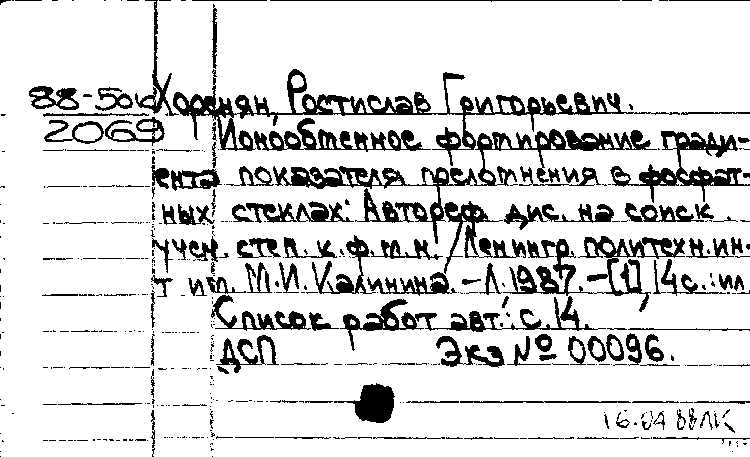 88-50к Хоренян, Ростислав Григорьевич.
2069 Ионообменное формирование гради-
ента показателя преломления в фосфат-
ных стеклах: Автореф. дис. на соиск.
учен. степ. к.ф.-м.н. / Ленингр. политехн. ин-
т им. М.И. Калинина. - Л., 1987. - [1], 14 с.: ил
Список работ авт.: с. 14.
ДСП Экз № 00096.
16.04 88ЛК